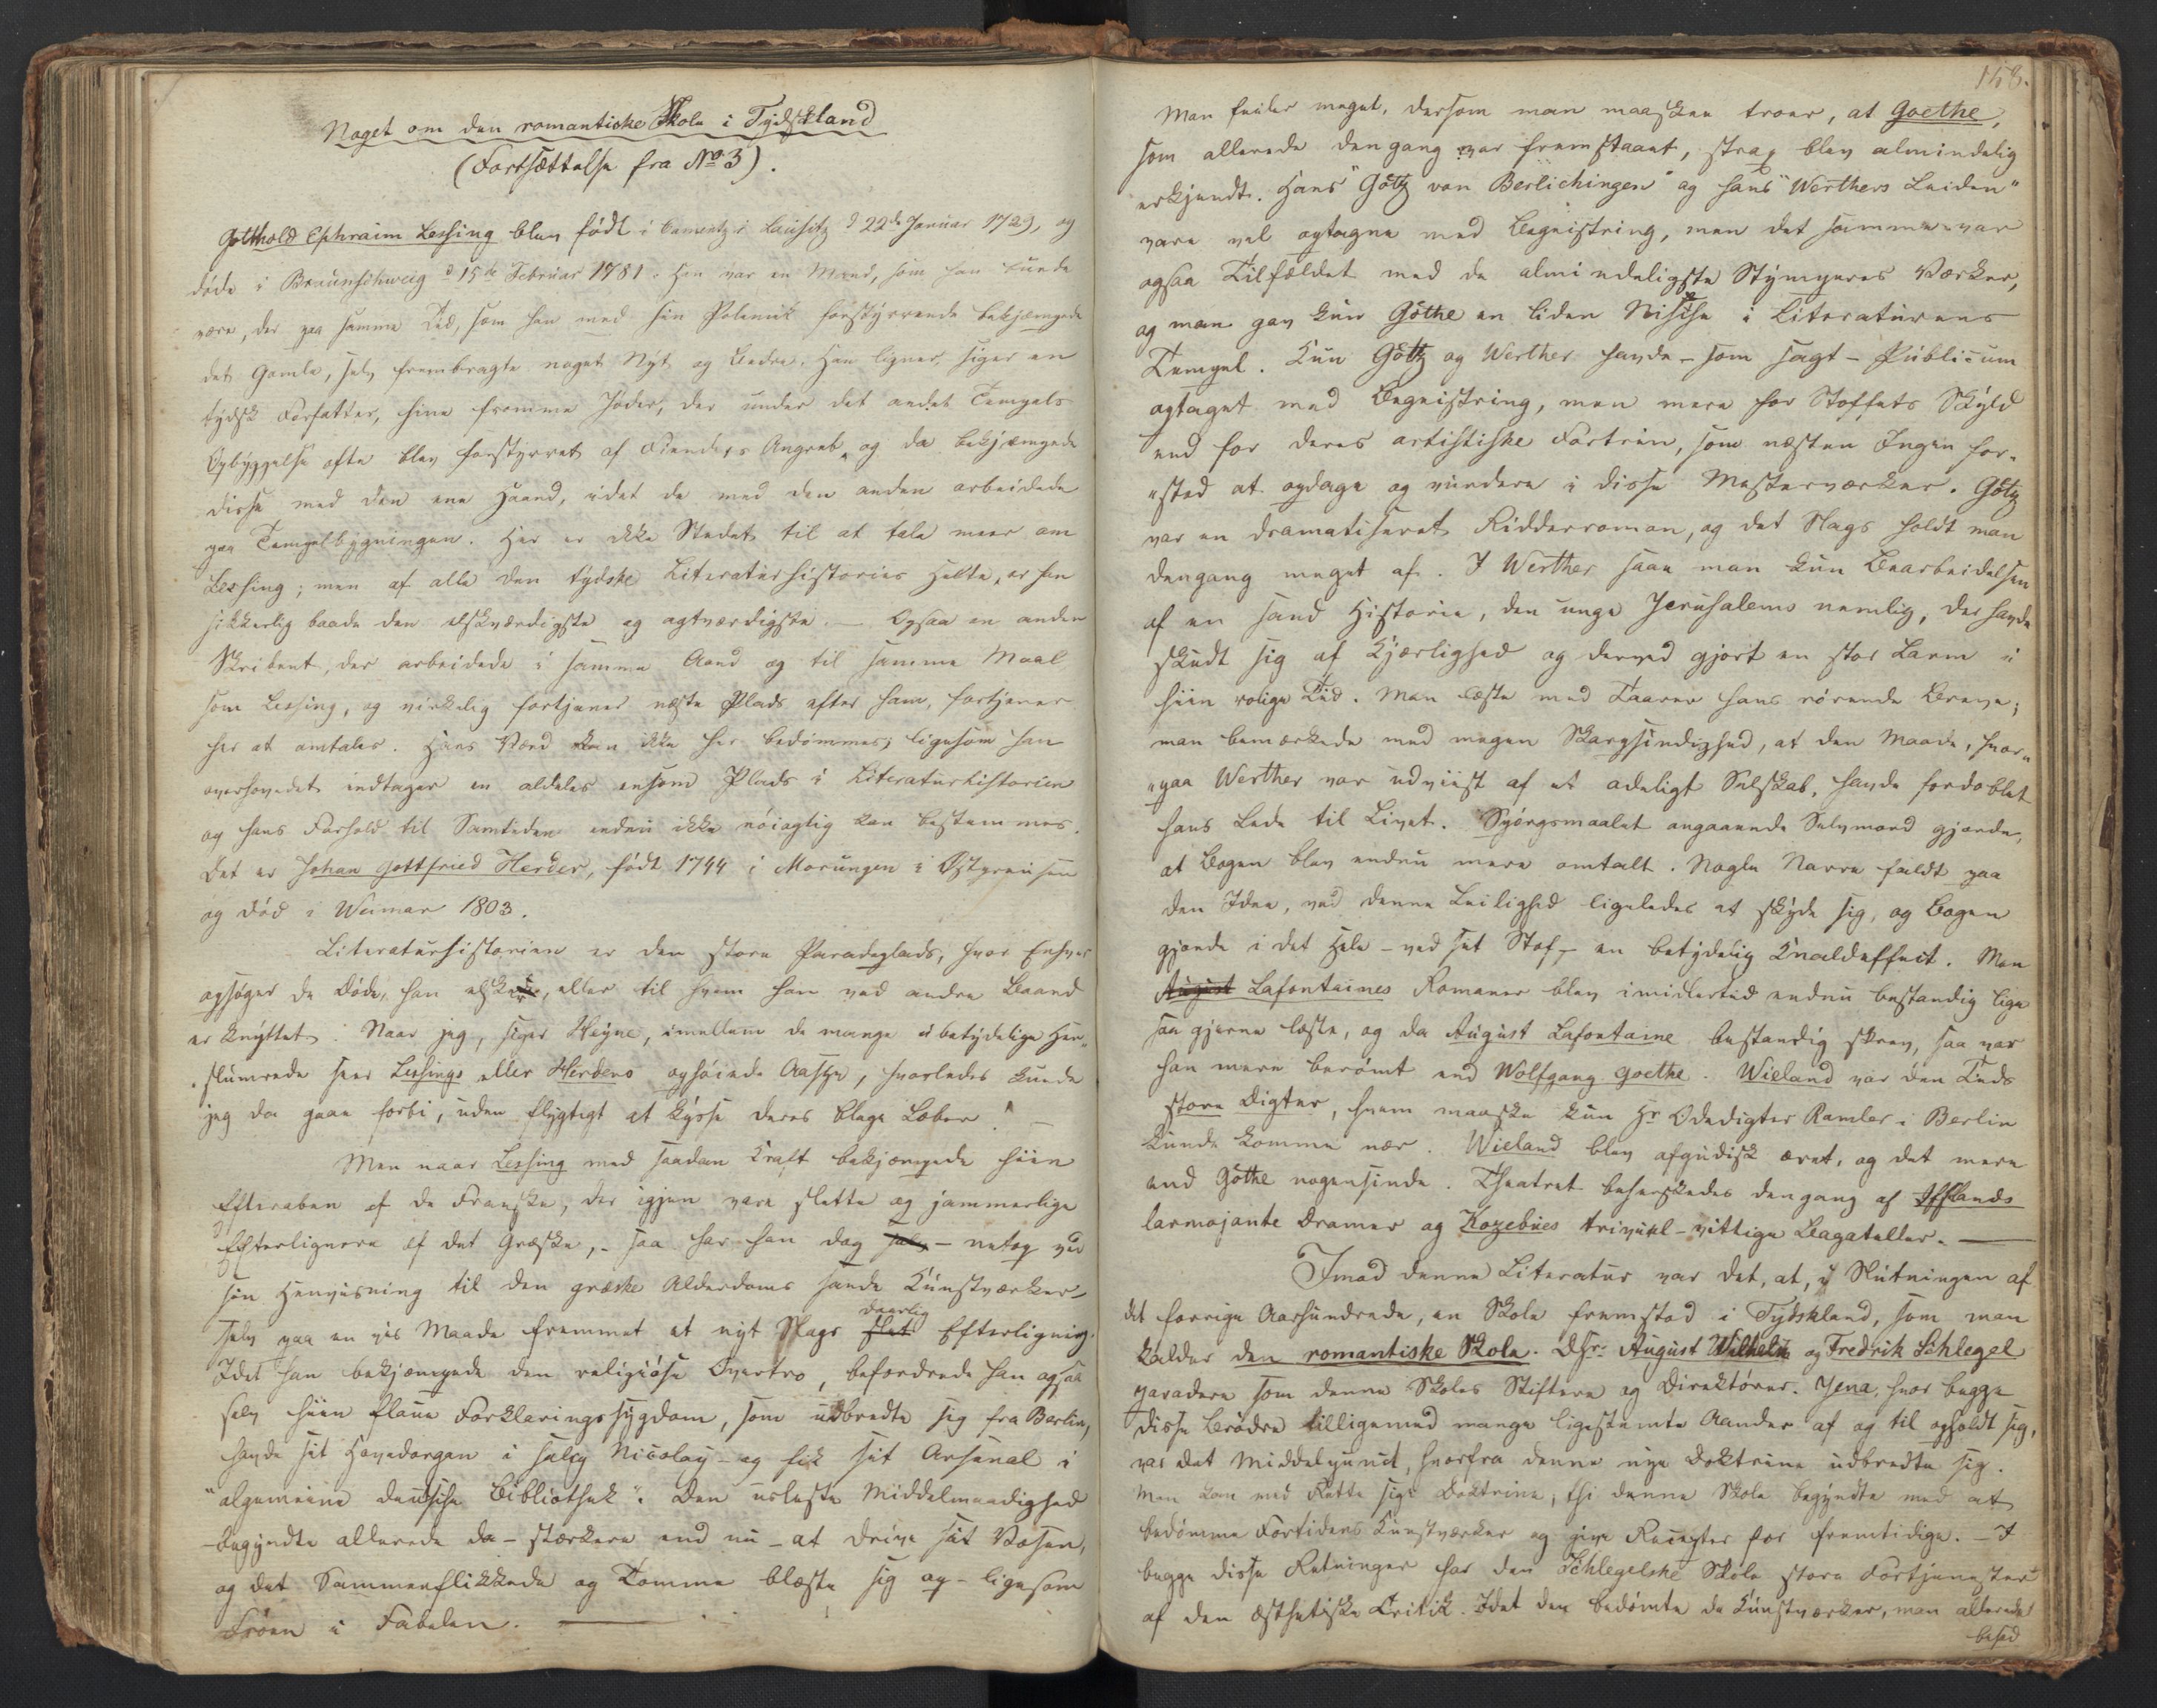 Noget om den romantiske Skole i Tydskland
(Fortsættelse fra No 3).
Gotthold Ephraim Lessing blev födt i Camentz i Lausitz d 22de Januar 1729, og
döde i Braunschweig d 15de Februar 1781. Han var en Mand, som han burde
være, der paa samme Tid, som han med sin Polemik forstyrrende bekjæmpede
det Gamle, selv frembragte noget Nyt og Bedre. Han ligner, siger en
tydsk Forfatter, hine fromme Jøder, der under det andet Tempels
Opbyggelse ofte blev forstyrret af Fienders Angreb og da bekjæmpede
disse med den ene Haand, idet de med den anden arbeidede
paa Tempelbygningen. Her er ikke Stedet til at tale meer om
Lessing; men af alle den tydske Literaturhistories Helte, er han
sikkerlig baade den elskværdigste og agtværdigste. — Ogsaa en anden
Skribent, der arbeidede i samme Aand og til samme Maal
som Lessing, og virkelig fortjener næste Plads efter ham, fortjener
her at omtales. Hans Værd kan ikke her bedömmes; ligesom han
overhovedet indtager en aldeles ensom Plads i Literaturhistorien
og hans Forhold til Samtiden endnu ikke nöiagtig kan bestemmes.
Det er Johan Gottfried Herder, födt 1744 i Morungen i Østpreusen
og död i Weimar 1803.
Literaturhistorien er den store Paradeplads, hvor Enhver
opsöger de Döde, han elsker, eller til hvem han ved andre Baand
er knyttet. Naar jeg, siger Heyne, imellem de mange ubetydelige Hen-
slumrede seer Lessings eller Herders ophöiede Aasyn, hvorledes kunde
jeg da gaae forbi, uden flygtigt at kysse deres blege Læber! —
Men naar Lessing med saadan Kraft bekjæmpede hiin
Efteraben af de Franske, der igjen vare slette og jammerlige
Efterlignere af det Græske, — saa har han dog selv — netop ved
sin Henvisning til den græske Alderdoms sande Kunstværker —
selv paa en vis Maade fremmet et nyt Slags slet daarlig Efterligning.
Idet han bekjæmpede den religiöse Overtro, befordrede han ogsaa
selv hiin flaue Forklaringssygdom, som udbredte sig fra Berlin,
havde sit Hovedorgan i salig Nicolay — og fik sit Arsenal i
"algemeine deutsche Bibliothek". Den usleste Middelmaadighed
begyndte allerede da — stærkere end nu — at drive sit Væsen,
og det Sammenflikkede og Tomme blæste sig op — ligesom
Fröen i Fabelen. —
158.
Man feiler meget, dersom man maaskee troer, at Goethe,
som allerede dengang var fremstaaet, strax blev almindelig
erkjendt. Hans "Götz von Berlichingen" og hans "Werthers Leiden"
vare vel optagne med Begeistring, men det samme var
ogsaa Tilfældet med de almindeligste Stymperes Værker,
og man gav kun Göthe en liden Nische i Literaturens
Tempel. Kun Götz og Werther havde — som sagt — Publicum
optaget med Begeistring, men mere for Stoffets Skyld
end for deres artistiske Fortrin, som næsten Ingen for-
stod at opdage og vurdere i disse Mesterværker. Götz
var en dramatiseret Ridderroman, og det Slags holdt man
dengang meget af. I Werther saae man kun Bearbeidelsen
af en sand Historie, den unge Jerusalems nemlig, der havde
skudt sig af Kjærlighed og derved gjort en stor Larm i
hiin rolige Tid. Man læste med Taarer hans rörende Breve;
man bemærkede med megen Skarpsindighed, at den Maade, hvor-
paa Werther var udviist af et adeligt Selskab, havde fordoblet
hans Lede til Livet. Spörgsmaalet angaaende Selvmord gjorde,
at Bogen blev endnu mere omtalt. Nogle Narre faldt paa
den Idee, ved denne Leilighed ligeledes at skyde sig, og Bogen
gjorde i det Hele — ved sit Stof, — en betydelig Knaldeffect. Men
August Lafontaines Romaner blev imidlertid endnu bestandig lige
saa gjerne læste, og da August Lafontaine bestandig skrev, saa var
han mere berömt end Wolfgang Goethe. Wieland var den Tids
store Digter, hvem maaske kun Hr Odedigter Ramler i Berlin
kunde komme nær. Wieland blev afgudisk æret, og det mere
end Göthe nogensinde. Theatret beherskedes dengang af Ifflands
larmojante Dramer og Kozebues trivial-vittige Bagateller. —
Imod denne Literatur var det, at, i Slutningen af
det forrige Aarhundrede, en Skole fremstod i Tydskland, som man
kalder den romantiske Skole. DHr: August Wilhelm og Fredrik Schlegel
paradere som denne Skoles Stiftere og Direktörer. Jena, hvor begge
disse Brödre tilligemed mange ligestemte Aander af og til opholdt sig,
var det Middelpunct, hvorfra denne nye Doktrine udbredte sig.
Man kan med Rette sige Doktrine, thi denne Skole begyndte med at
bedömme Fortidens Kunstværker og give Recepter for fremtidige. — I
begge disse Retninger har den Schlegelske Skole store Fortjenester
af den æsthetiske Critik. Idet den bedömte de Kunstværker, man allerede
besad